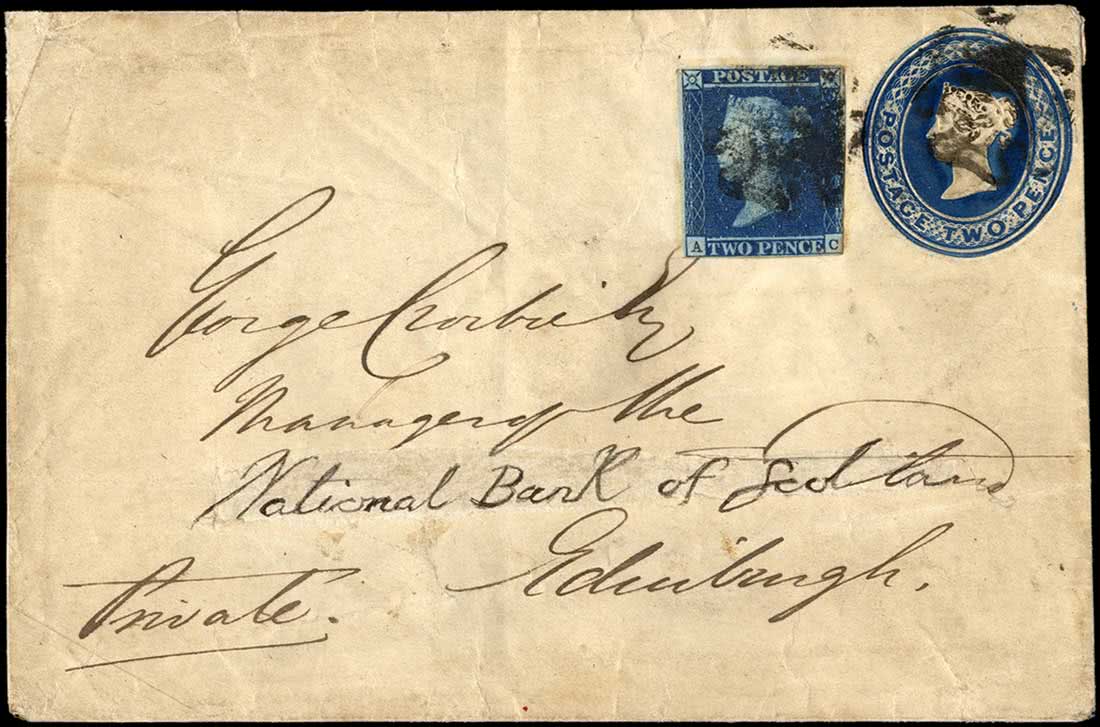 POSTAGE
A TWO PENCE C
POSTAGE TWO PENCE
George Crosbie Esq
Manager of the
National Bank of Scotland
Edinburgh.
Private.